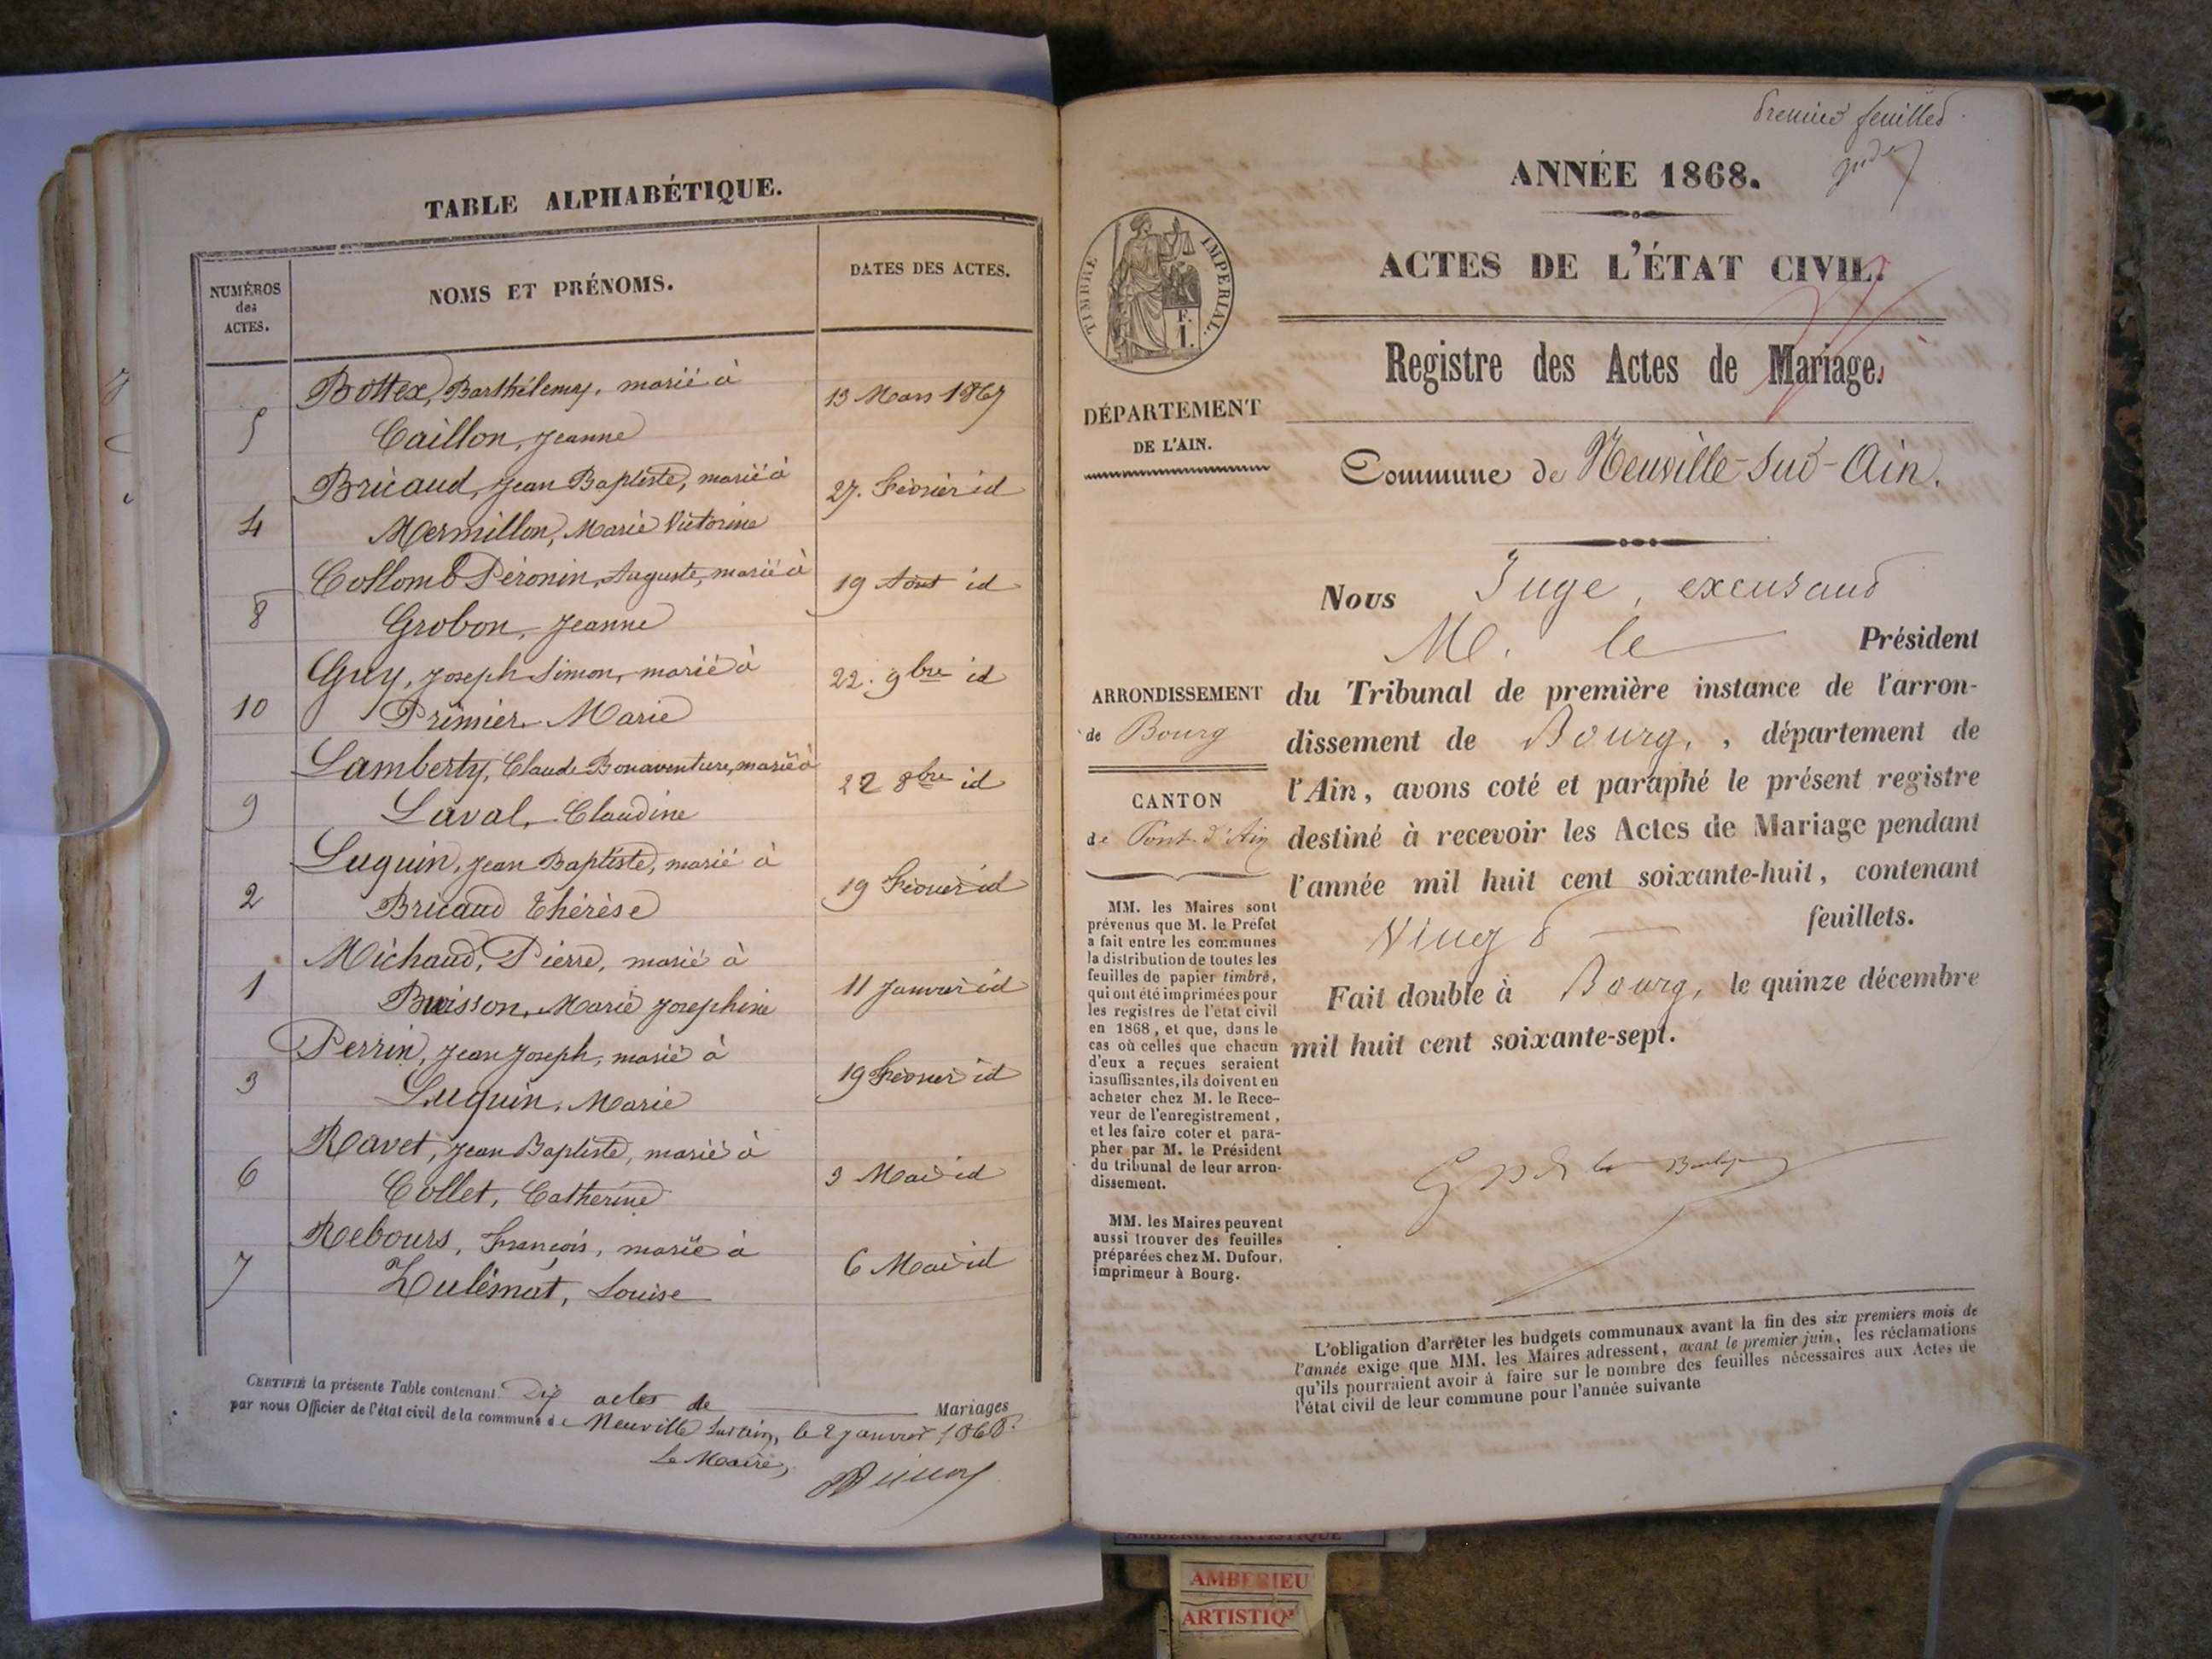 TABLE ALPHABÉTIQUE.
NUMÉROS
des
ACTES.
NOMS ET PRÉNOMS.
DATES DES ACTES.
Bottex, Barthélemy, marié à
5
Caillon, Jeanne
13 Mars 1867
Bricaud, Jean Baptiste, marié à
4
Mermillon, Marie Victorine
27. Février id
Collomb Péronin, Auguste, marié à
8
Grobon, Jeanne
19 Aout id
Guy, Joseph Simon, marié à
10
Prémier Marie
22. 9bre id
Lamberty, Claude Bonaventure, marié à
9
Laval, Claudine
22 8bre id
Luquin, Jean Baptiste, marié à
2
Bricaud Thérèse
19 Février id
Michaud, Pierre, marié à
1
Buisson, Marie Josephine
11 Janvier id
Perrin, Jean Joseph, marié à
3
Luquin, Marie
19 Février id
Ravet, Jean Baptiste, marié à
6
Collet, Catherine
3 Mai id
Rebours, François, marié à
7
Zulémat, Louise
6 Mai id
CERTIFIÉ la présente Table contenant Dix actes de Mariages
par nous Officier de l'état civil de la commune de Neuville sur ain, le 2 janvier 1868.
Le Maire,
Premier feuillet
ANNÉE 1868.
ACTES DE L'ÉTAT CIVIL.
Registre des Actes de Mariage.
Commune de Neuville-sur-Ain.
TIMBRE IMPÉRIAL.
F.
1.
DÉPARTEMENT
DE L'AIN.
ARRONDISSEMENT
de Bourg
CANTON
de Pont-d'Ain
MM. les Maires sont
prévenus que M. le Préfet
a fait entre les communes
la distribution de toutes les
feuilles de papier timbré,
qui ont été imprimées pour
les registres de l'état civil
en 1868, et que, dans le
cas où celles que chacun
d'eux a reçues seraient
insuffisantes, ils doivent en
acheter chez M. le Rece-
veur de l'enregistrement,
et les faire coter et para-
pher par M. le Président
du tribunal de leur arron-
dissement.
MM. les Maires peuvent
aussi trouver des feuilles
préparées chez M. Dufour,
imprimeur à Bourg.
Nous Juge, excusant
M. le Président
du Tribunal de première instance de l'arron-
dissement de Bourg, , département de
l'Ain, avons coté et paraphé le présent registre
destiné à recevoir les Actes de Mariage pendant
l'année mil huit cent soixante-huit, contenant
Vingt feuillets.
Fait double à Bourg, le quinze décembre
mil huit cent soixante-sept.
L'obligation d'arrêter les budgets communaux avant la fin des six premiers mois de
l'année exige que MM. les Maires adressent, avant le premier juin, les réclamations
qu'ils pourraient avoir à faire sur le nombre des feuilles nécessaires aux Actes de
l'état civil de leur commune pour l'année suivante
AMBERIEU ARTISTIQUE
AMBERIEU
ARTISTIQ